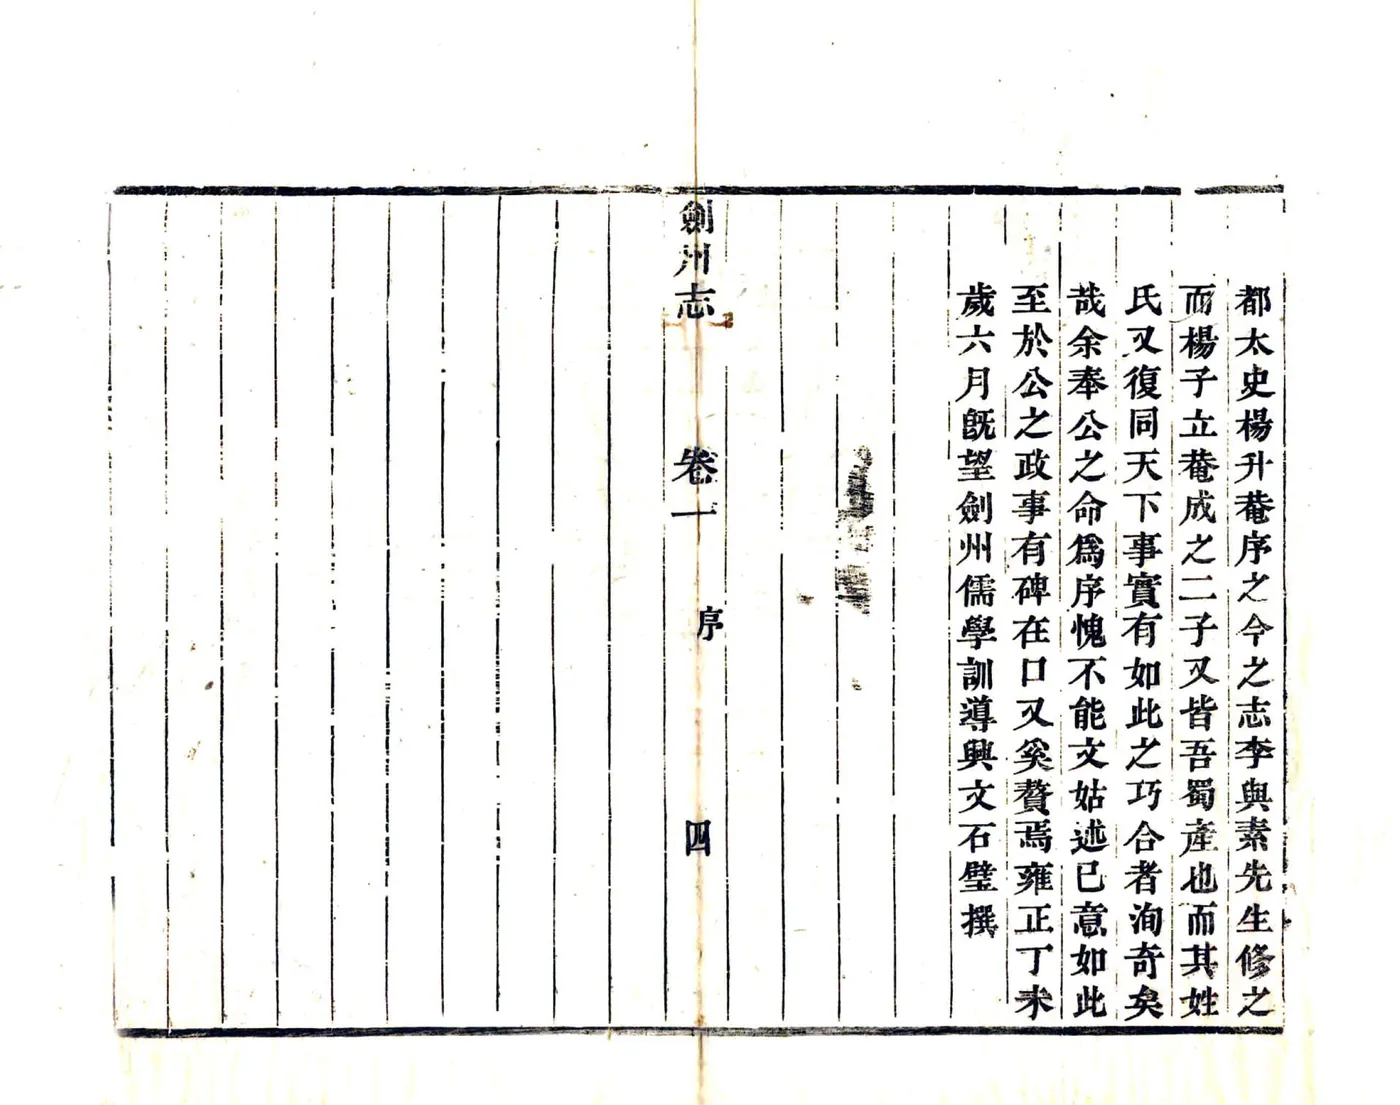 都太史楊升菴序之今之志李與素先生修之
而楊子立菴成之二子又皆吾蜀產也而其姓
氏又復同天下事實有如此之巧合者洵奇矣
哉余奉公之命爲序愧不能文姑述已意如此
至於公之政事有碑在口又奚贅焉雍正丁未
歲六月旣望劍州儒學訓導興文石璧撰
劍州志 卷一 序 四